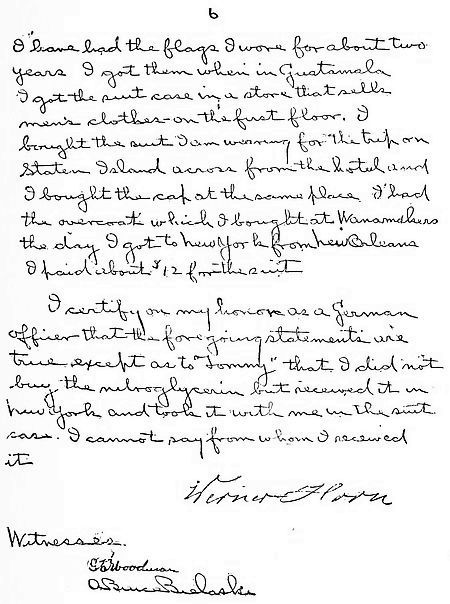 6
I have had the flags I wore for about two
years I got them when in Guatamala
I got the suit case in a store that sells
men's clothes on the first floor. I
bought the suit I am wearing for the trip on
Staten Island across from the hotel and
I bought the cap at the same place I had
the overcoat which I bought at Wanamakers
the day I got to New York from New Orleans
I paid about $12 for the suit
I certify on my honor as a German
officer that the foregoing statements are
true except as to "Tommy" that I did not
buy the nitroglycerin but received it in
New York and took it with me in the suit
case. I cannot say from whom I received
it
Werner Horn
Witnesses.
Woodman
A Bruce Bielaski